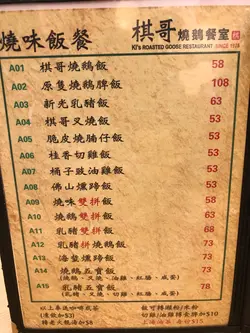 燒味飯餐
棋哥 燒鵝餐室
KI's ROASTED GOOSE RESTAURANT SINCE
A01 棋哥燒鵝飯 58
A02 原隻燒鵝脾飯 108
A03 新光乳豬飯 63
A04 棋哥叉燒飯 53
A05 脆皮燒腩仔飯 53
A06 桂香切雞飯 53
A07 桶子豉油雞飯 53
A08 佛山燻蹄飯 53
A09 燒味雙拼飯 58
A10 燒鵝雙拼飯 63
A11 乳豬雙拼飯 68
A12 乳豬拼燒鵝飯 73
A13 海蜇燻蹄飯 53
A14 燒鵝五寶飯 73
(燒鵝、叉燒、油雞、紅腸、咸蛋)
A15 乳豬五寶飯 78
(乳豬、叉燒、油雞、紅腸、咸蛋)
以上奉送咖啡或茶
(凍飲加$3)
轉老火靚湯加$8
飯可轉瀨粉/米粉
切雞/油雞轉長脾加$10